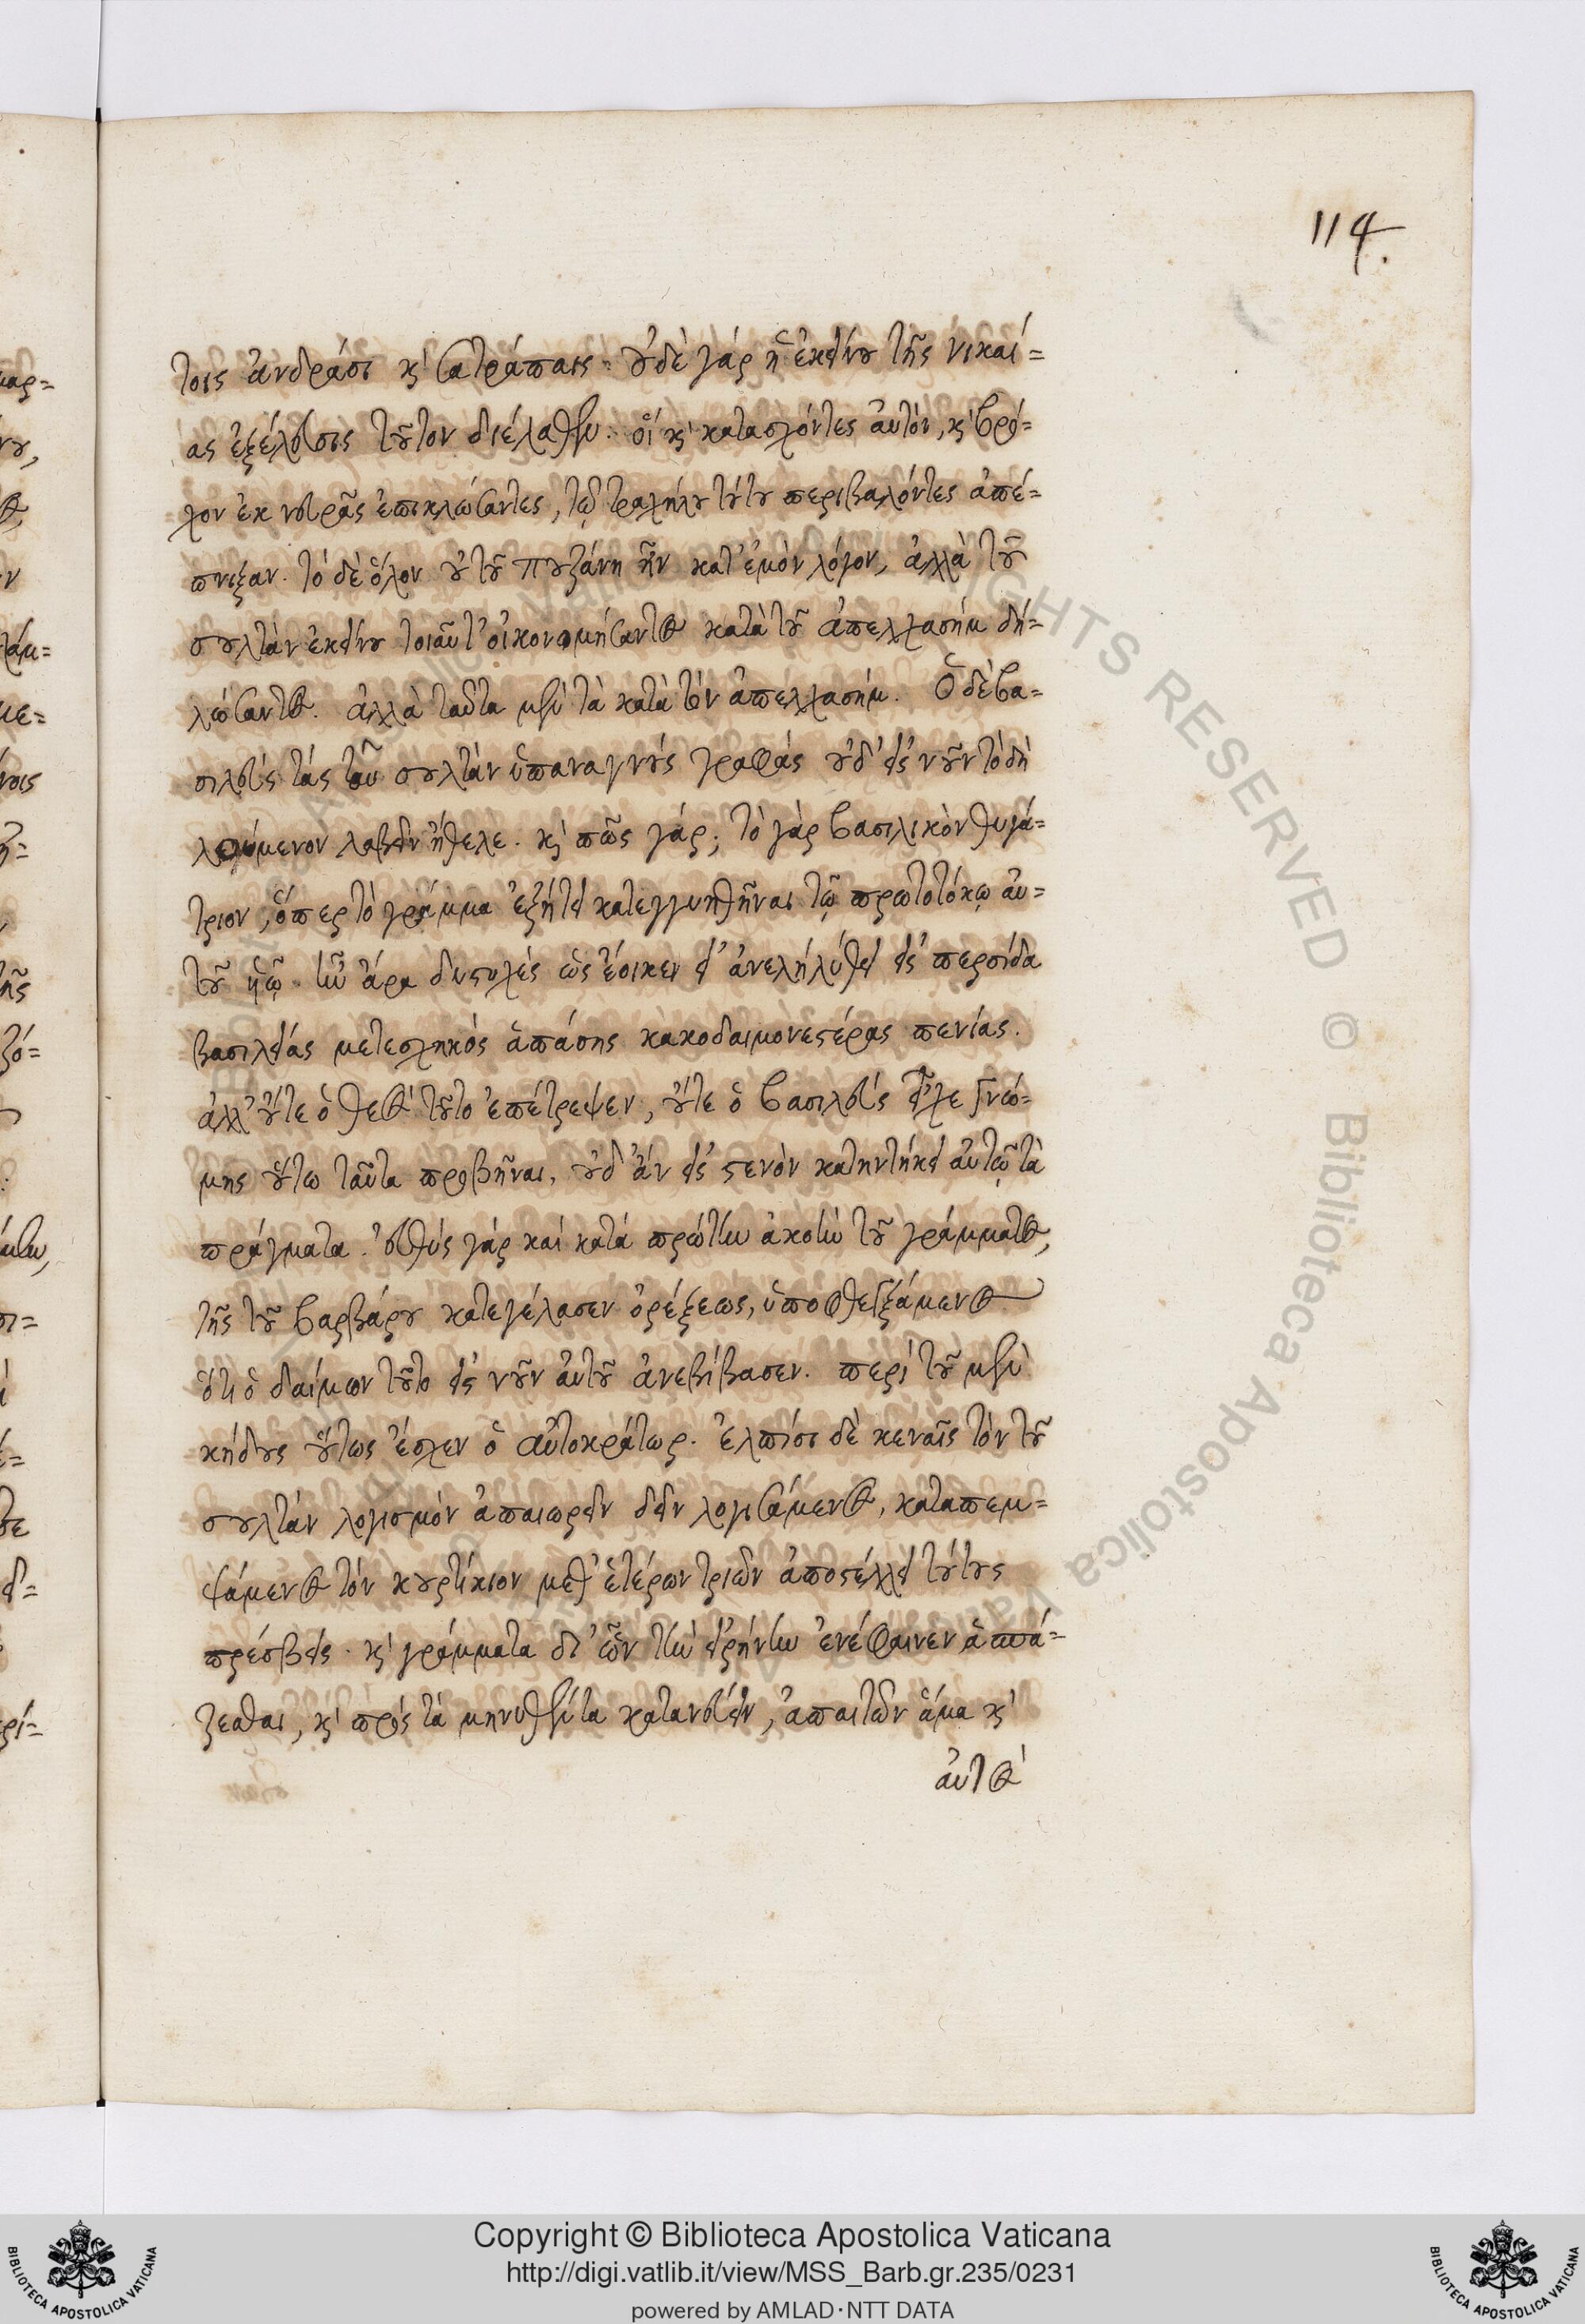 114.
τοις ἀνδράσι κὶ σατράπαις. οὐδὲ γάρ ἡ ἐκείνου τῆς νικαί=
ας ἐξέλευσις τοῦτον διέλαθεν. οἱ κὶ κατασχόντες αὐτὸν, κὶ βρό=
χον ἐκ νευρᾶς ἐπικλώσαντες, τῷ τραχήλῳ τούτου περιβαλόντες ἀπέ=
πνιξαν. τὸ δὲ ὅλον οὐ τοῦ πουζάνη ἦν κατ' ἐμὸν λόγον, ἀλλὰ τοῦ
σουλτὰν ἐκείνου τοιαῦτ' οἰκονομήσαντος κατὰ τοῦ ἀπελχασήμ δη=
λώσαντος. ἀλλὰ ταῦτα μὲν τὰ κατὰ τὸν ἀπελχασήμ. Ὁ δὲ βα=
σιλεύς τάς τοῦ σουλτὰν ὑπαναγνούς γραφάς οὐδ' εἰς νοῦν τὸ δη
λούμενον λαβεῖν ἤθελε. κὶ πῶς γάρ; τὸ γὰρ βασιλικὸν θυγά=
τριον, ὅπερ τὸ γράμμα ἐξῄτει κατεγγυηθῆναι τῷ πρωτοτόκῳ αὐ=
τοῦ ὑιῷ. ἦν ἄρα δυστυχές ὡς ἔοικεν εἰ ἀνεληλύθει εἰς περσίδα
βασιλείας μετεσχηκός ἁπάσης κακοδαιμονεστέρας πενίας.
ἀλλ' οὔτε ὁ θεός τοῦτο ἐπέτρεψεν, οὔτε ὁ βασιλεύς εἶχε γνώ=
μης οὕτω ταῦτα προβῆναι, οὐδ' ἄν εἰς στενὸν κατηντήκει αὐτῷ τὰ
πράγματα. εὐθύς γάρ καὶ κατά πρώτην ἀκοὴν τοῦ γράμματος,
τῆς τοῦ βαρβάρου κατεγέλασεν ὀρέξεως, ὑποφθεγξάμενος
ὅτι ὁ δαίμων τοῦτο εἰς νοῦν αὐτοῦ ἀνεβίβασεν. περὶ τοῦ μὲν
κήδους οὕτως ἔσχεν ὁ αὐτοκράτωρ. ἐλπίσι δὲ κεναῖς τὸν τοῦ
σουλτάν λογισμόν ἀπαιωρεῖν δεῖν λογισάμενος, καταπεμ=
ψάμενος τόν κουρτίκιον μεθ' ἑτέρων τριῶν ἀποστέλλει τούτους
πρέσβεις. κὶ γράμματα δι' ὧν τὴν εἰρήνην ἐνέφαινεν ἀσπά=
ζεσθαι, κὶ πρός τὰ μηνυθέντα κατανεύειν, ἀπαιτῶν ἅμα κὶ
αὐτός
Copyright © Biblioteca Apostolica Vaticana
http://digi.vatlib.it/view/MSS_Barb.gr.235/0231
powered by AMLAD·NTT DATA